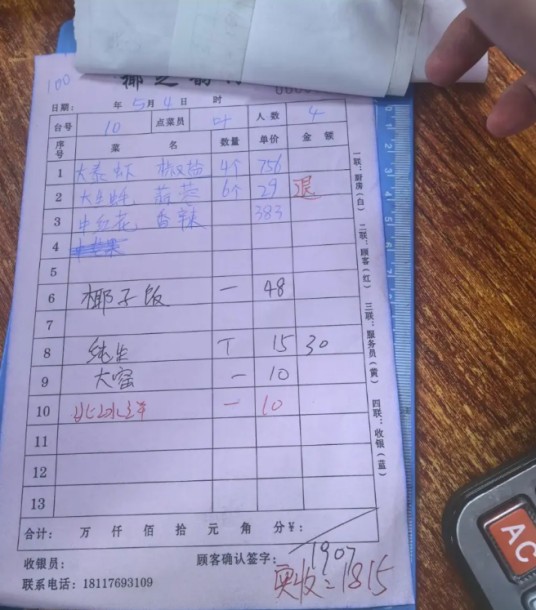 100
椰之韵
日期： 年 5 月 4 日 时
台号 10 点菜员 叶 人数 4
序号 菜名 数量 单价 金额
1 大泰虾 椒盐 4个 756
2 大生蚝 蒜蓉 6个 29 退
3 香辣 383
4
5
6 椰子饭 一 48
7
8 纯生 T 15 30
9 大窑 一 10
10 北冰洋 一 10
11
12
13
合计： 万 仟 佰 拾 元 角 分 ¥：
1907
收银员： 顾客确认签字：
联系电话：18117693109
实收：1815
一联：厨房（白） 二联：顾客（红） 三联：服务员（黄） 四联：收银（蓝）
AC